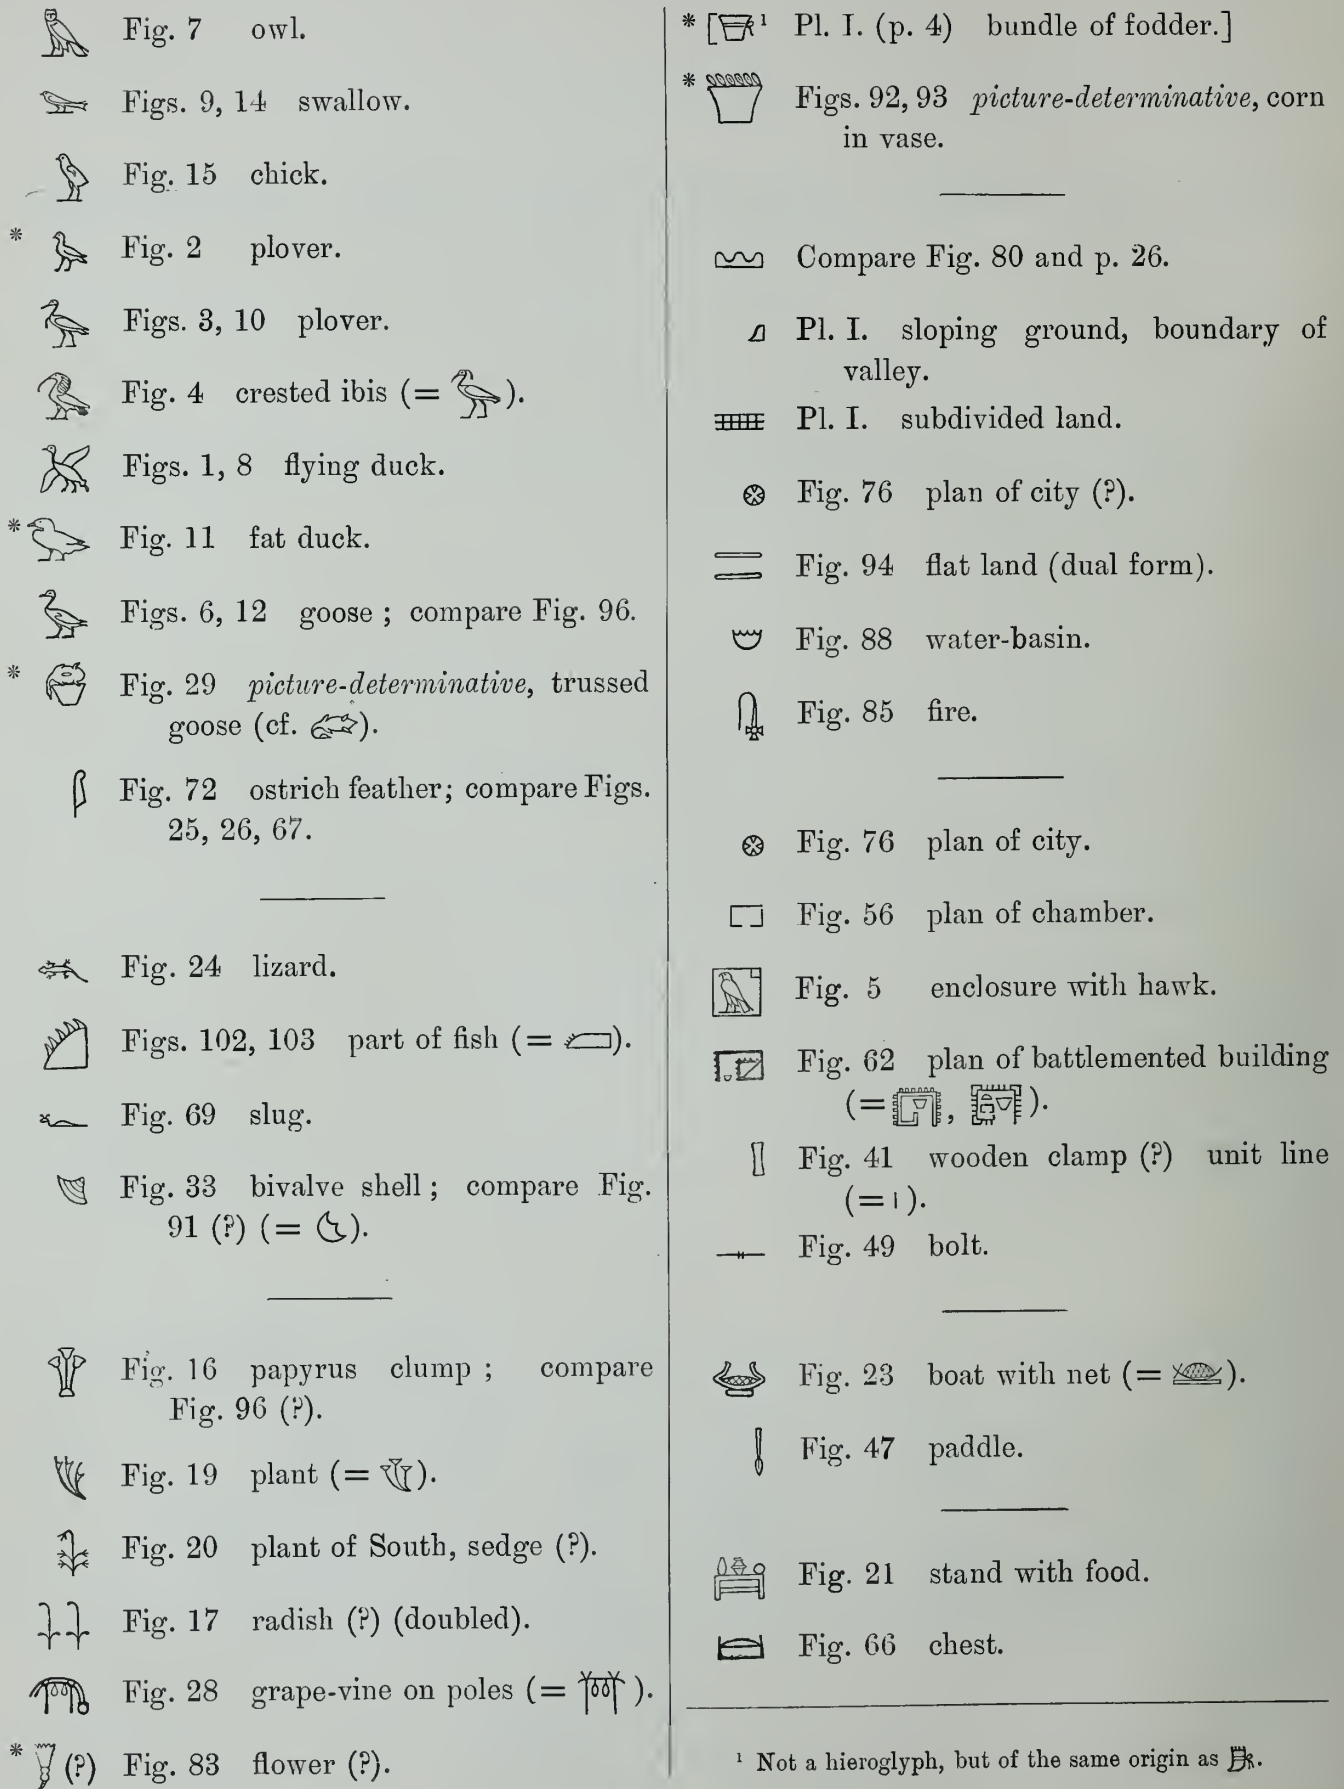 Fig. 7 owl.
Figs. 9, 14 swallow.
Fig. 15 chick.
* Fig. 2 plover.
Figs. 3, 10 plover.
Fig. 4 crested ibis (= ).
Figs. 1, 8 flying duck.
* Fig. 11 fat duck.
Figs. 6, 12 goose ; compare Fig. 96.
* Fig. 29 picture-determinative, trussed
goose (cf. ).
Fig. 72 ostrich feather; compare Figs.
25, 26, 67.
Fig. 24 lizard.
Figs. 102, 103 part of fish (= ).
Fig. 69 slug.
Fig. 33 bivalve shell ; compare Fig.
91 (?) (= ).
Fig. 16 papyrus clump ; compare
Fig. 96 (?).
Fig. 19 plant (= ).
Fig. 20 plant of South, sedge (?).
Fig. 17 radish (?) (doubled).
Fig. 28 grape-vine on poles (= ).
* (?) Fig. 83 flower (?).
* [ 1 Pl. I. (p. 4) bundle of fodder.]
* Figs. 92, 93 picture-determinative, corn
in vase.
Compare Fig. 80 and p. 26.
Pl. I. sloping ground, boundary of
valley.
Pl. I. subdivided land.
Fig. 76 plan of city (?).
Fig. 94 flat land (dual form).
Fig. 88 water-basin.
Fig. 85 fire.
Fig. 76 plan of city.
Fig. 56 plan of chamber.
Fig. 5 enclosure with hawk.
Fig. 62 plan of battlemented building
(= , ).
Fig. 41 wooden clamp (?) unit line
(= I ).
Fig. 49 bolt.
Fig. 23 boat with net (= ).
Fig. 47 paddle.
Fig. 21 stand with food.
Fig. 66 chest.
1 Not a hieroglyph, but of the same origin as .